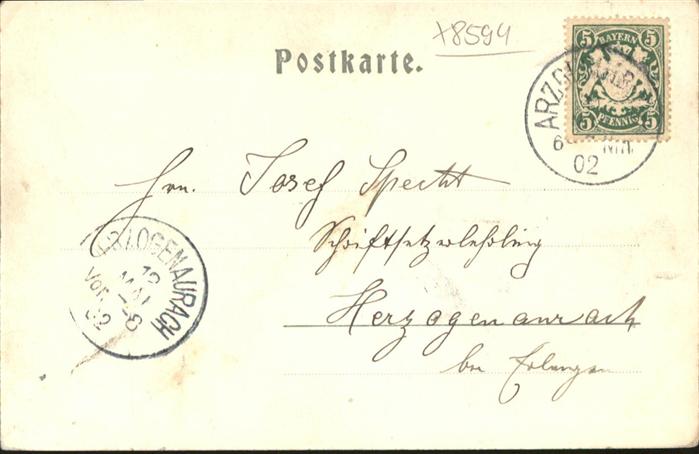 x8594
Postkarte.
5 BAYERN 5
5 PFENNIG 5
ARZB
6
Nm.
02
Hrn. Josef Specht
Schriftsetzerlehrling
Herzogenaurach
bei Erlangen
ZOGENAURACH
MAI
Vor.
02